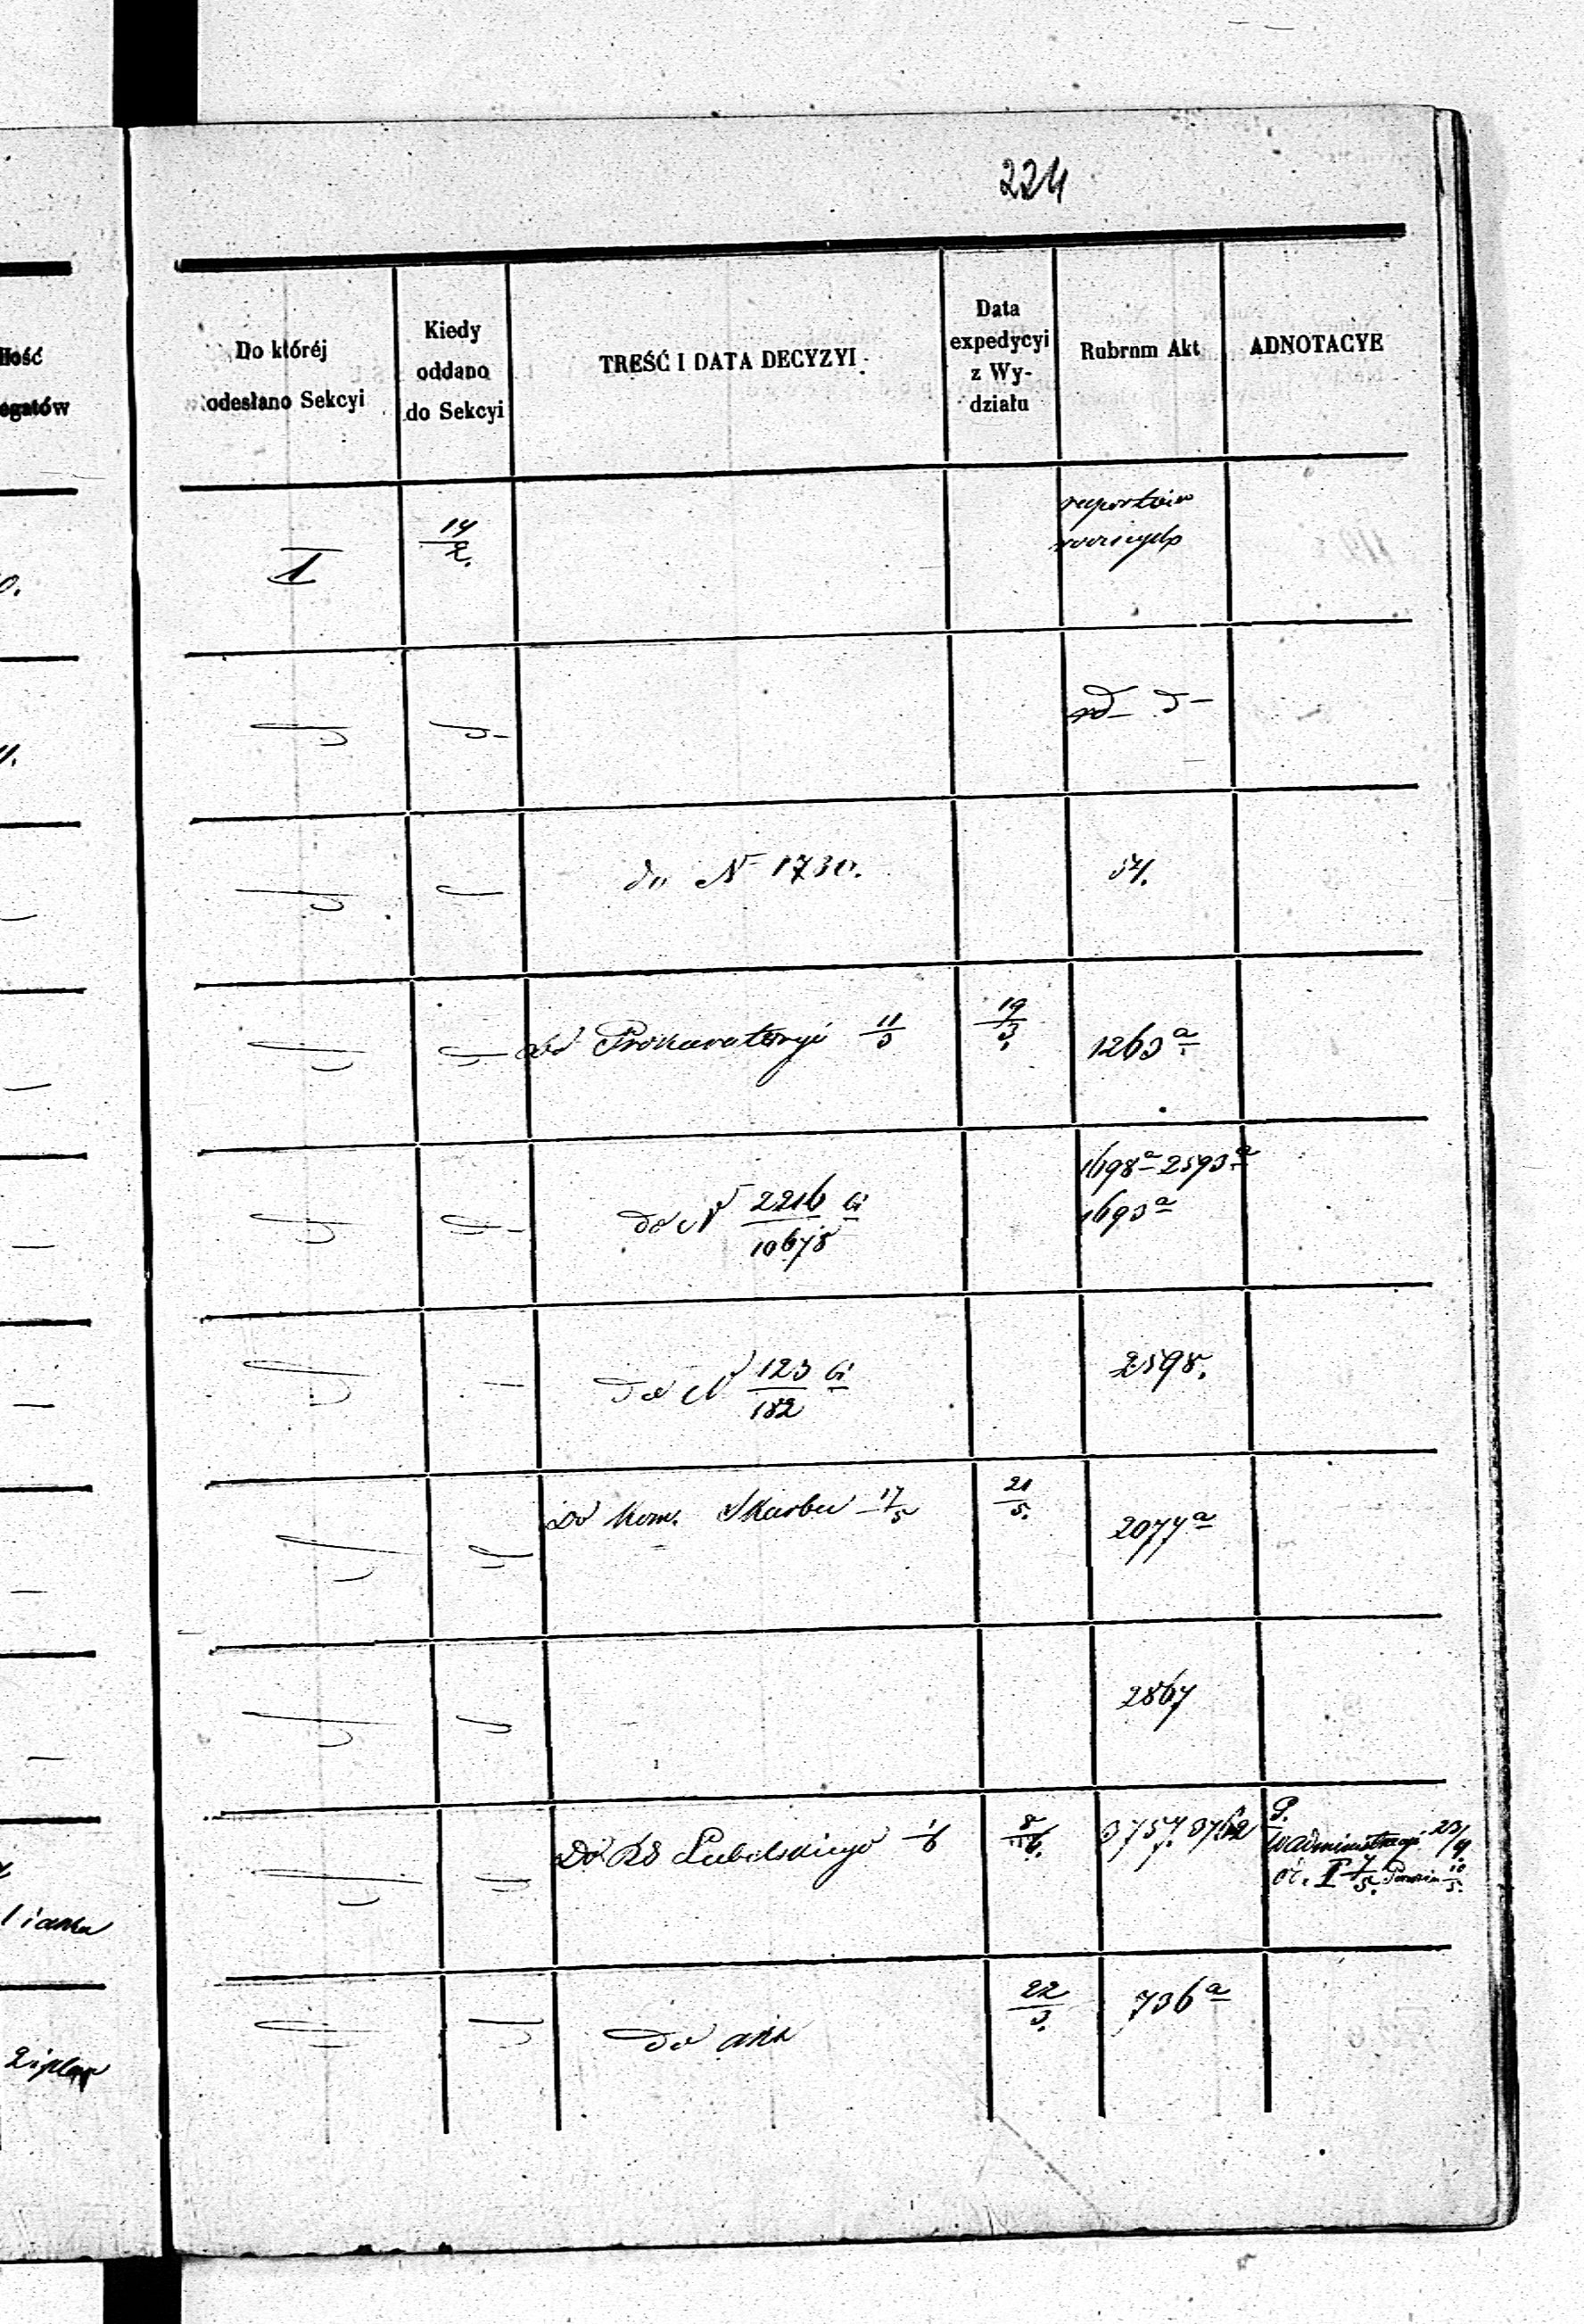 224
ilość
egatów
Do któréj
odesłano Sekcyi
Kiedy
oddano
do Sekcyi
TREŚĆ I DATA DECYZYI
Data
expedycyi
z Wy-
działu
Rubrum Akt
ADNOTACYE
I
14/2.
raportów
do N 1730.
54.
do Prokuratoryi 11/3
19/3.
1263 a
do N 2216/10678
1698 a 2593 a
1693 a
do N 123/182
2598.
Do Kom. Skarbu 17/5
21/5.
2077 a
2867
Do Rd Lubelskiego 1/6
8/6.
3757. 3762
P.
W administracyi 23/4.
I 7/5. 10/5.
do akt
22/3.
736 a